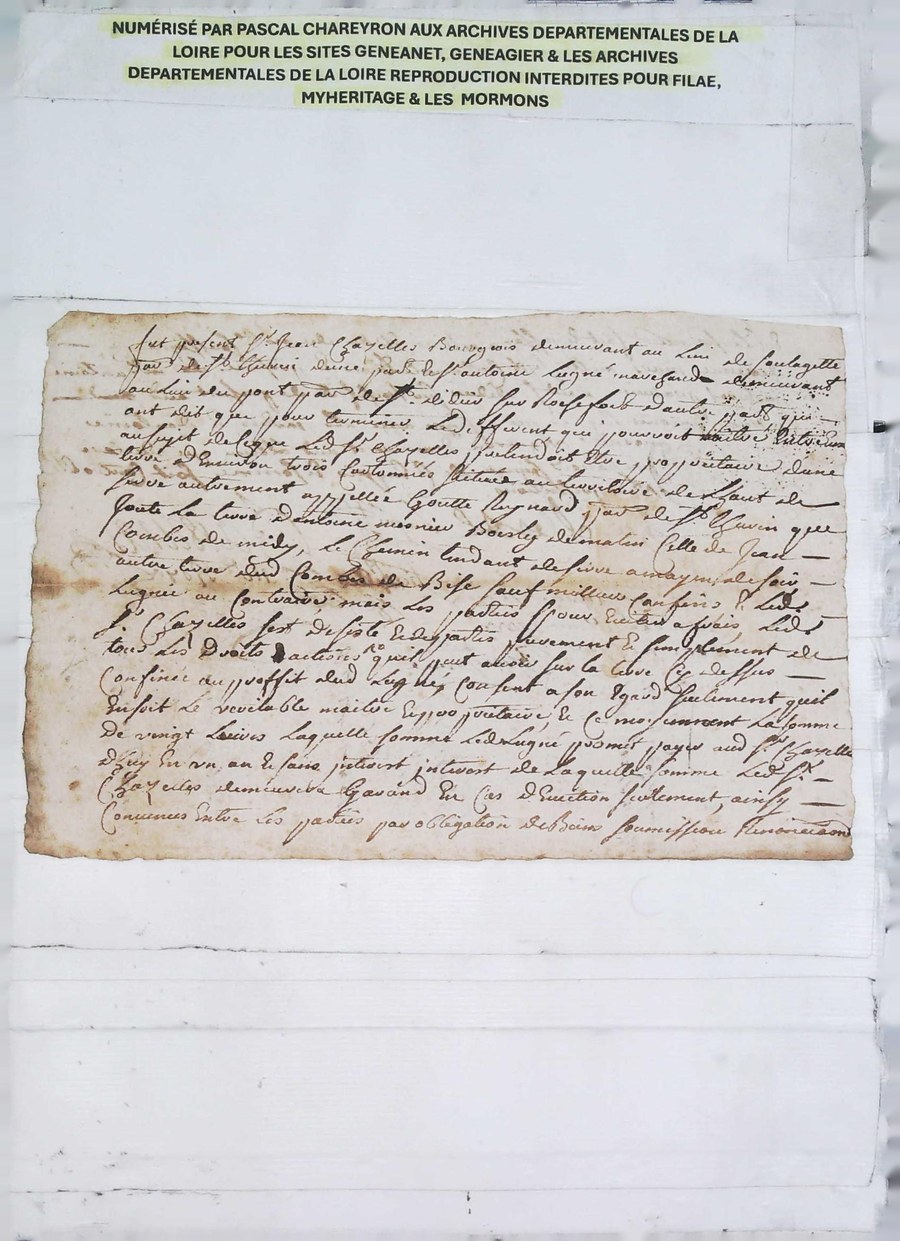 NUMÉRISÉ PAR PASCAL CHAREYRON AUX ARCHIVES DEPARTEMENTALES DE LA
LOIRE POUR LES SITES GENEANET, GENEAGIER & LES ARCHIVES
DEPARTEMENTALES DE LA LOIRE REPRODUCTION INTERDITES POUR FILAE,
MYHERITAGE & LES MORMONS
fut present Sr Jean Chazelles Bourgeois demeurant au lieu de soulagette
par de St thurin dune part & Sr antoine Lugné marchand demeurant
au lieu du pont par de St didier sur Rochefort dautre part qui
ont dit que pour terminer le different qui pourroit naitre Entre Eux
au sujet de ceque Led Sr Chazelles pretendoit Etre propriétaire dune
terre dEnviron trois Cartonnées située au territoire de
autrement appellée Goutte Reynard par de St thurin que
Joute La terre dantoine mosnier de matin Celle de Jean
Combes de midy, Le Chemin tendant de a de soir
autre terre dud Combes de Bise sauf meilleurs Confins & Led
Lugné au Contraire mais Les parties pour Eviter a frais Led
Sr Chazelles sest desisté & departis purement & simplement de
tous Les Droits actions quil peut avoir sur la terre Cy dessus
Confinée au proffit dud Lugné Consent a son Egard seulement quil
En soit Le veritable maitre & propriétaire, & Ce moyennant La somme
de vingt Livres Laquelle somme Led Lugné promet payer aud Sr Chazelles
dhuy En un an & sans interest de Laquelle somme Led Sr
Chazelles demeurera Garand En Cas dEviction seulement, ainsy
Convenus Entre Les parties par obligation de Biens soumissions Renonciations